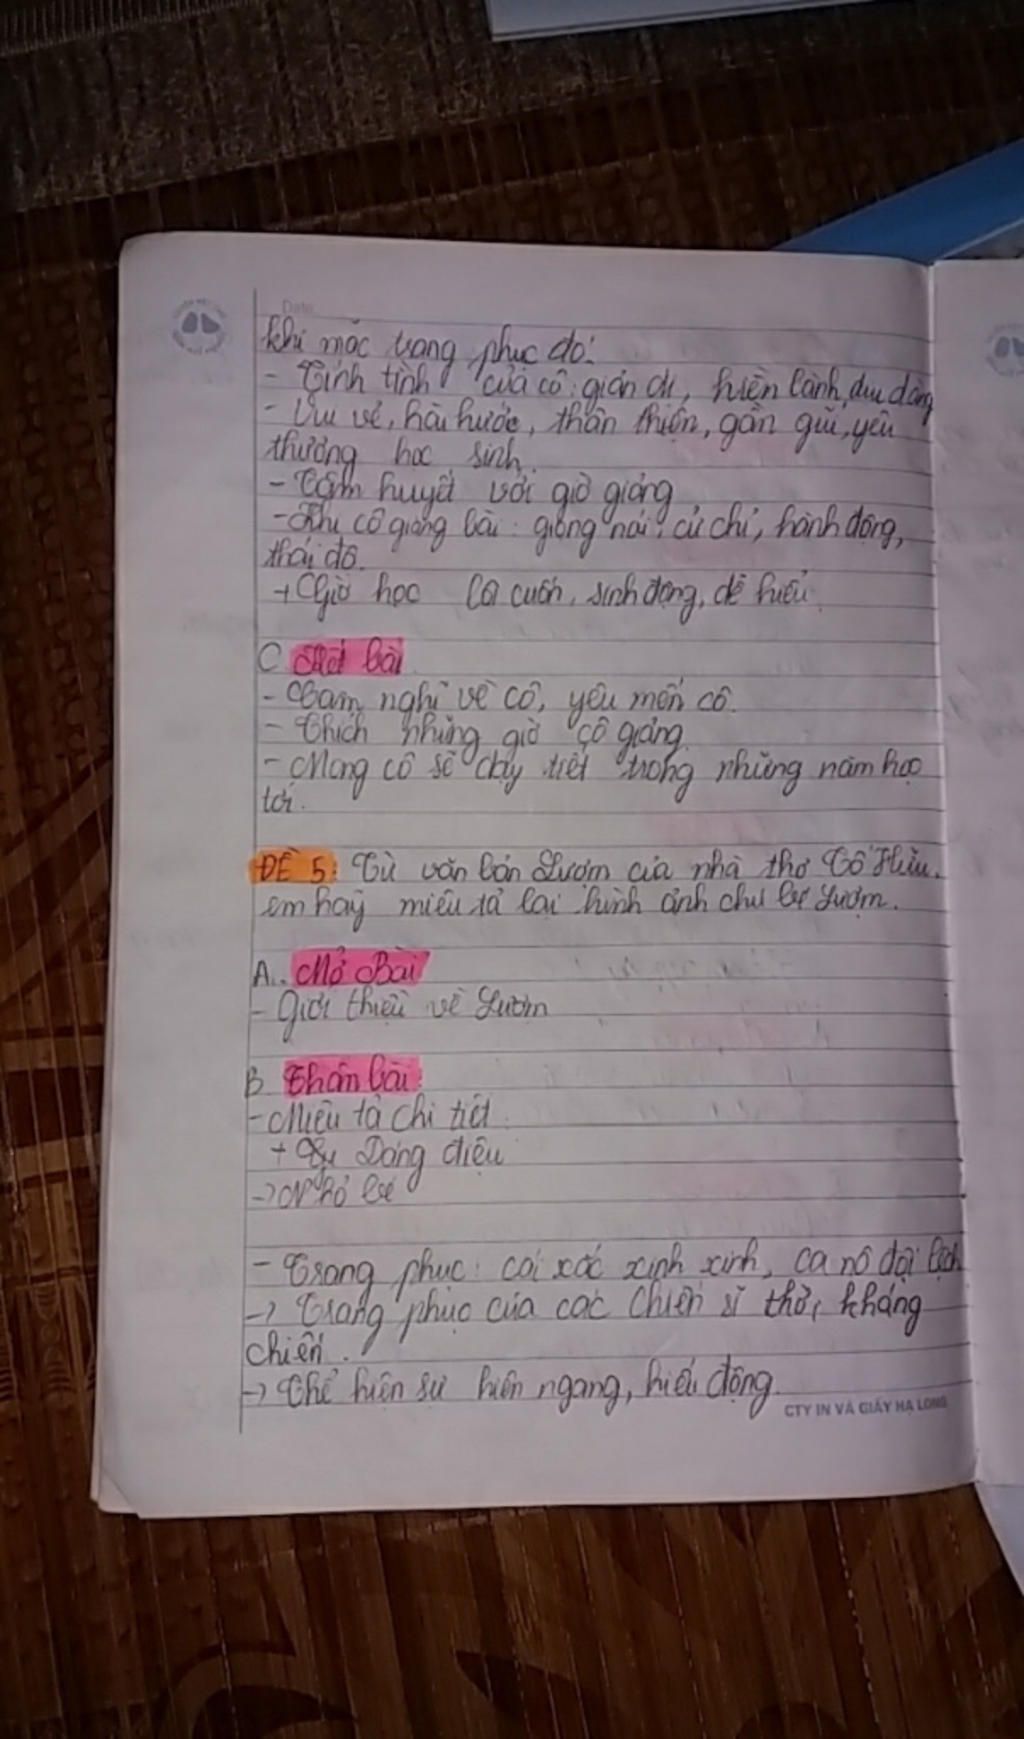 Date
khi mặc trang phục đó.
- Tính tình của cô: giản dị, hiền lành, dịu dàng
- Vui vẻ, hài hước, thân thiện, gần gũi, yêu
thương học sinh.
- Tâm huyết với giờ giảng
- Khi cô giảng bài: giọng nói, cử chỉ, hành động,
thái độ.
+ Giờ học lôi cuốn, sinh động, dễ hiểu.
C. Kết bài
- Cảm nghĩ về cô, yêu mến cô.
- Thích những giờ cô giảng.
- Mong cô sẽ dạy tiết trong những năm học
tới.
ĐỀ 5: Từ văn bản Lượm của nhà thơ Tố Hữu.
em hãy miêu tả lại hình ảnh chú bé Lượm.
A. Mở Bài
- Giới thiệu về Lượm
B. Thân bài:
- Miêu tả chi tiết.
+ Dáng điệu
-> Nhỏ bé
- Trang phục: cái xắc xinh xinh, ca nô đội lệch
-> Trang phục của các chiến sĩ thời kháng
chiến.
-> Thể hiện sự hiên ngang, hiếu động.
CTY IN VÀ GIẤY HẠ LONG